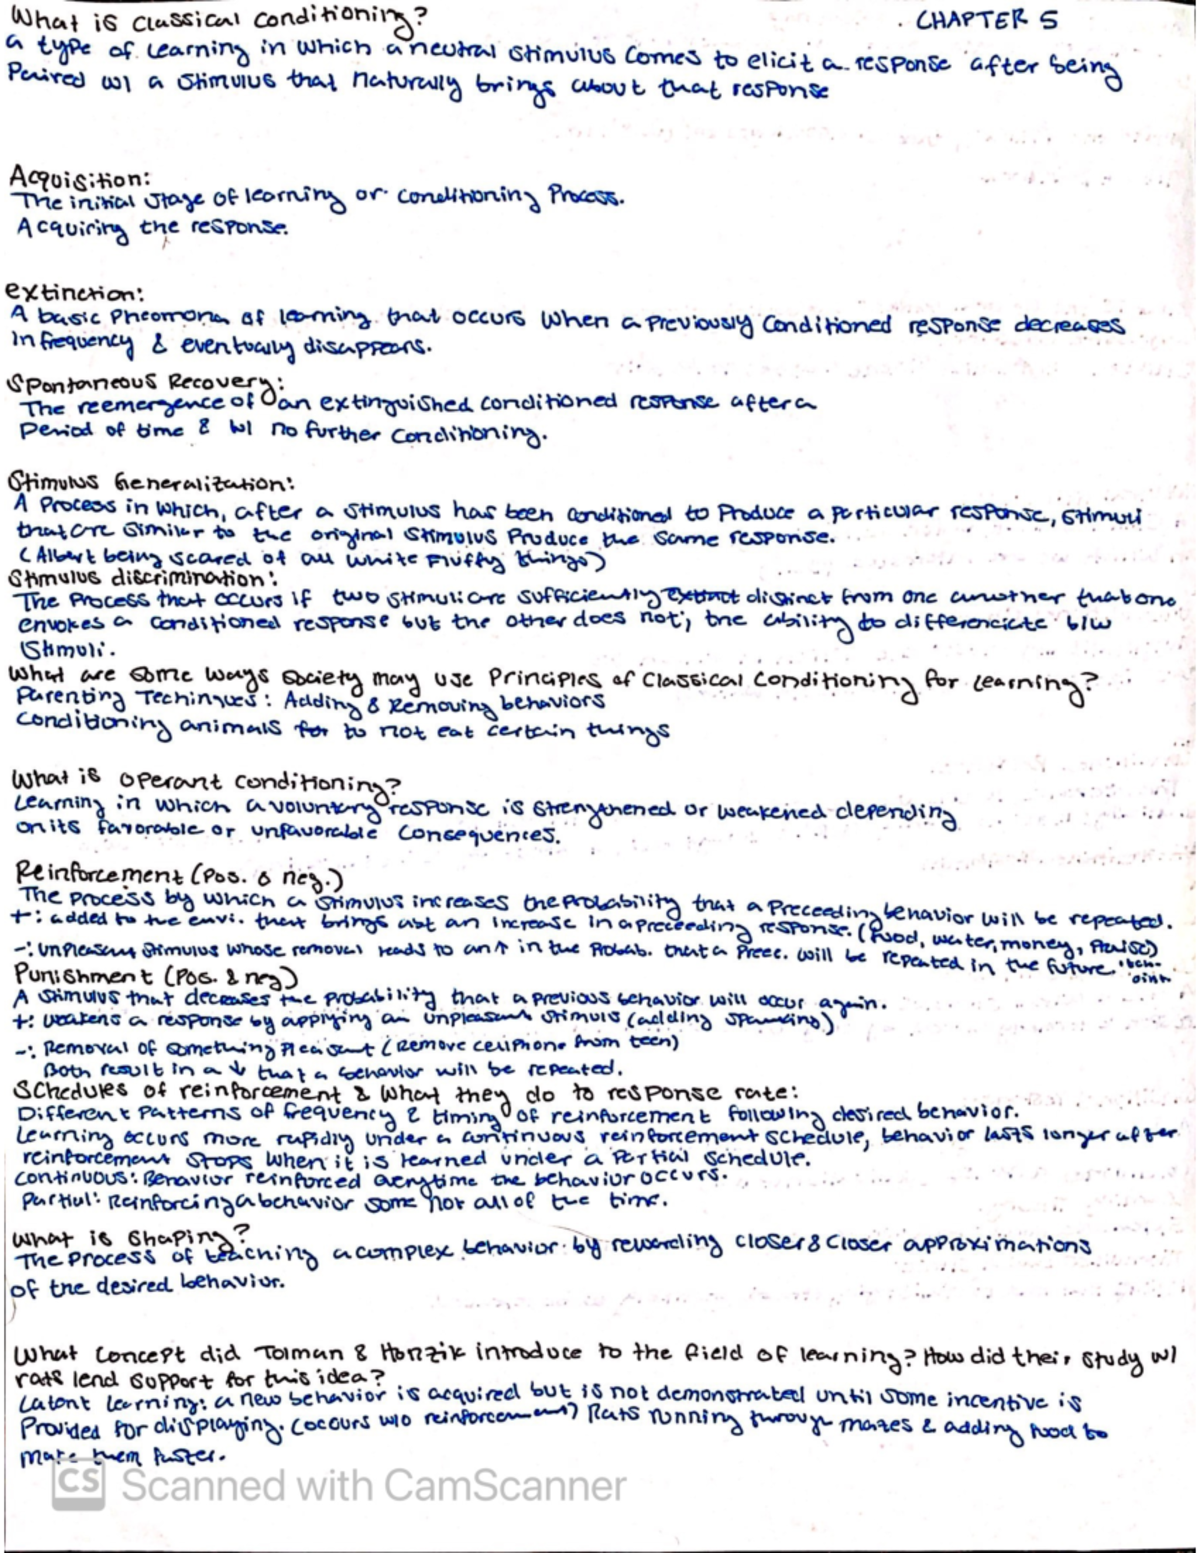 What is Classical Conditioning?
CHAPTER 5
a type of learning in which a neutral stimulus comes to elicit a response after being
Paired w/ a stimulus that naturally brings about that response
Acquisition:
The initial stage of learning or conditioning Process.
Acquiring the response.
extinction:
A basic Pheomona of learning that occurs when a previously conditioned response decreases
in frequency & eventually disappears.
Spontaneous Recovery:
The reemergence of an extinguished conditioned response after a
Period of time & w/ no further conditioning.
Stimulus Generalization:
A Process in which, after a stimulus has been conditioned to Produce a particular response, stimuli
that are similar to the original stimulus Produce the same response.
(Albert being scared of all white fluffy things)
Stimulus discrimination:
The Process that occurs if two stimuli are sufficiently distinct from one another that one
envokes a conditioned response but the other does not; the ability to differenciate b/w
Stimuli.
What are some ways society may use Principles of Classical Conditioning for learning?
Parenting Techinques: Adding & Removing behaviors
Conditioning animals for to not eat certain things
What is operant conditioning?
Learning in which a voluntary response is strengthened or weakened depending
on its favorable or unfavorable consequences.
Reinforcement (Pos. & neg.)
The process by which a stimulus increases the Probability that a Preceeding behavior will be repeated.
+: added to the envi. that brings abt an increase in a preceeding response. (food, water, money, Praise)
-: unpleasant stimulus whose removal leads to an ↑ in the Probab. that a Preec. will be repeated in the future.
Punishment (Pos. & neg)
A stimulus that decreases the probability that a previous behavior will occur again.
+: weakens a response by applying an unpleasant stimuls (adding spanking)
-: Removal of something Pleasant (Remove cellphone from teen)
Both result in a ↓ that a behavior will be repeated.
Schedules of reinforcement & what they do to response rate:
Different Patterns of frequency & timing of reinforcement following desired behavior.
Learning occurs more rapidly under a continuous reinforcement schedule, behavior lasts longer after
reinforcement stops when it is learned under a Partial schedule.
Continuous: Behavior reinforced everytime the behavior occurs.
Partial: Reinforcing a behavior some not all of the time.
What is Shaping?
The Process of teaching a complex behavior by rewarding closer & closer approximations
of the desired behavior.
What concept did Tolman & Honzik introduce to the field of learning? How did their study w/
rats lend support for this idea?
Latent learning: a new behavior is acquired but is not demonstrated until some incentive is
Provided for displaying. (occurs w/o reinforcement) Rats running through mazes & adding food to
make them faster.
CS Scanned with CamScanner